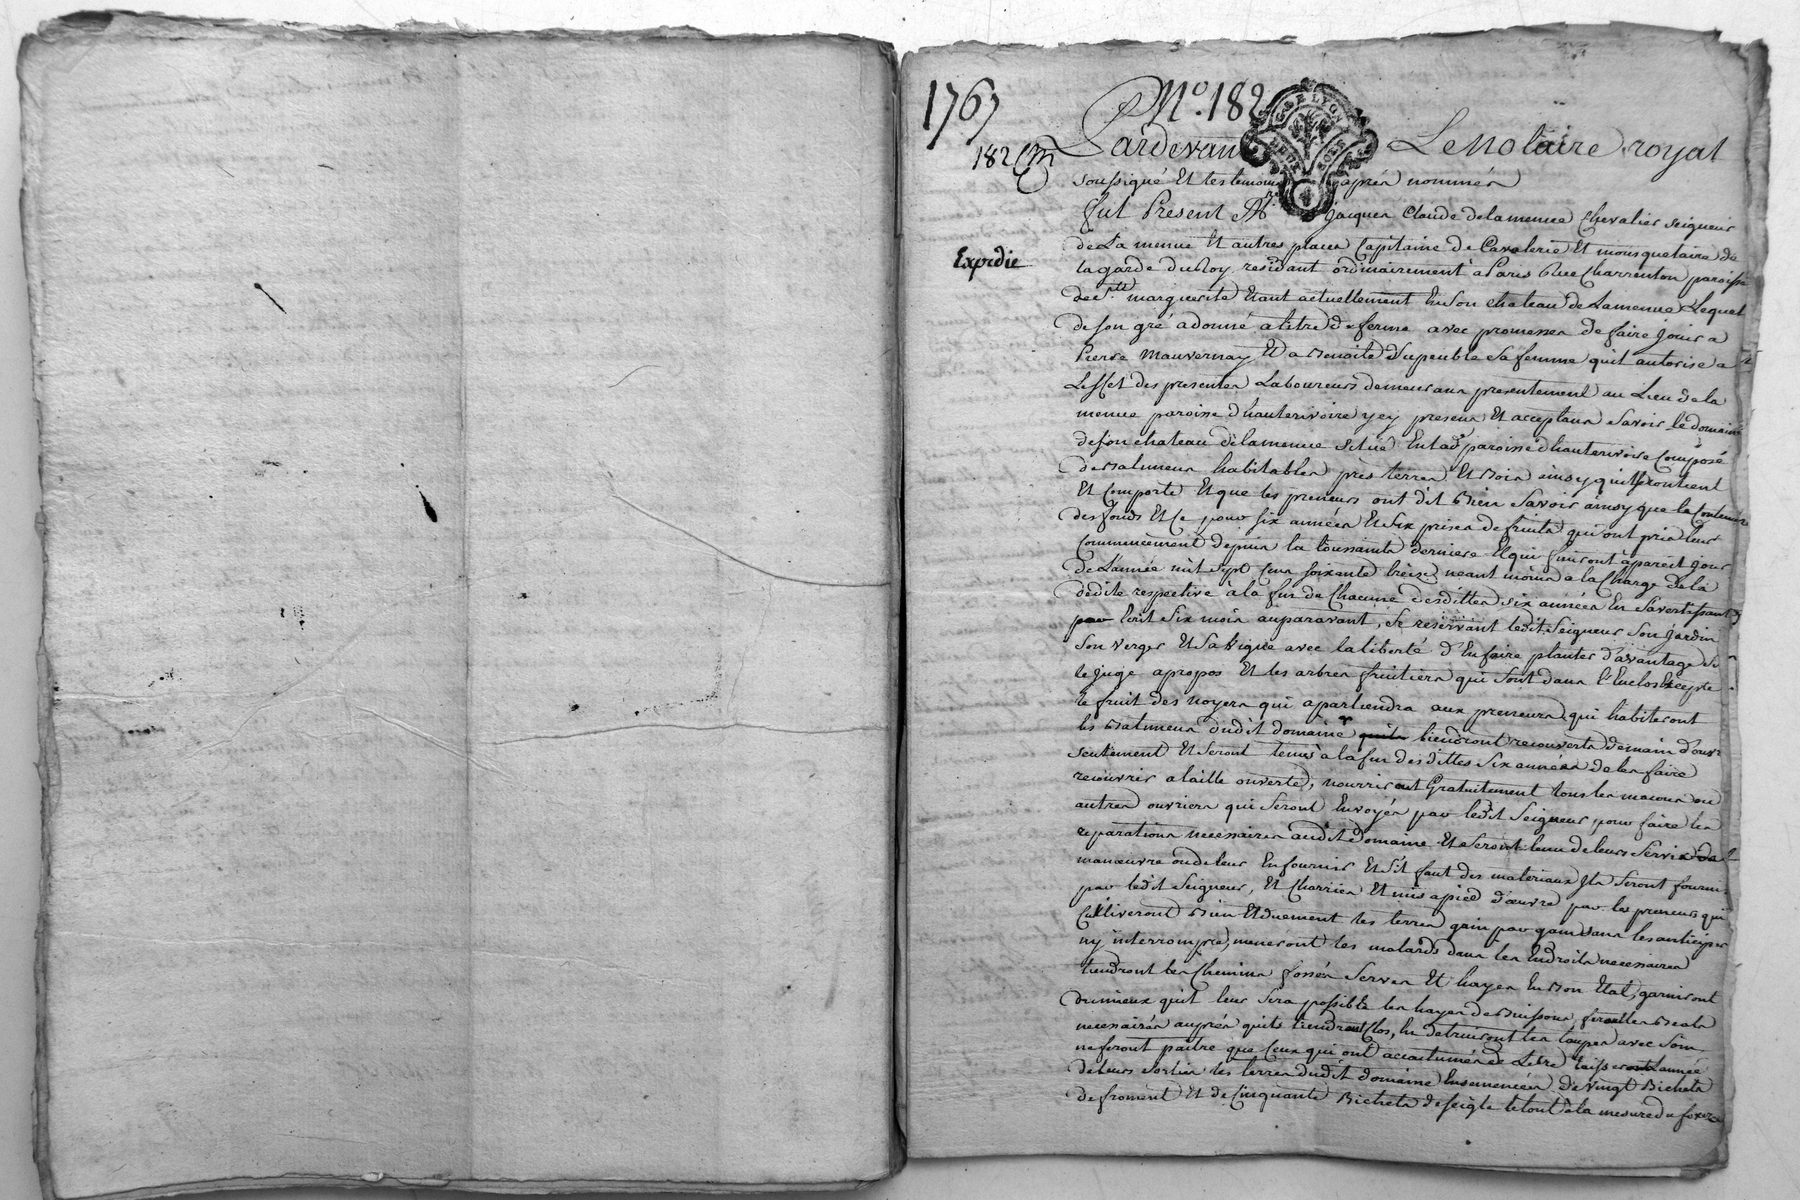 1767
N.o 182
182
Expedie
Pardevant Le Notaire royal
soussigné Et les temoins aprés nommés
fut Present M.re Jacques Claude delamenue Chevalier seigneur
de La menue Et autres places Capitaine de Cavalerie Et mousquetaire de
la garde du Roy, residant ordinairement à Paris Rue Charrenton paroisse
de S.te marguerite Etant actuellement En son chateau de Lamenue Lequel
de son gré a donné a titre de ferme avec promesses de faire Jouir a
Pierre Mauvernay Et a Benoite Dupeuble sa femme quil autorise a
L'effet des presentes Laboureurs demeurans presentement au Lieu de la
menue paroisse d'hauterivoire yey presens Et acceptans Savoir le domaine
de son chateau delamenue situé En lad.e paroisse d'hauterivoire Composé
de Batimens habitables près terres Et Bois ainsy quil contient
Et Comporte Et que les preneurs ont dit Bien Savoir ainsy que la Contenue
des fonds Et Ce pour six années Et Six prises de fruits qui ont pris leur
Commencement depuis la toussaints derniere Et qui finiront à pareil Jour
de L'année mil Sept Cens soixante treise, neant moins a la Charge de la
dédite respective à la fin de Chacune desdittes six années En Savertissant
par Ecrit Six mois auparavant, Se reservant ledit Seigneur Son Jardin
Son verger Et Sa Vigne avec la liberté d'En faire planter d'avantage Si
le Juge apropos Et les arbres fruitiers qui Sont dans l'Enclos Excepté
le fruit des noyers qui apartiendra aux preneurs, qui habiteront
les Batimens dudit domaine tiendront recouverts de main d'ouvr
seulement Et seront tenus à la fin desdittes Six années de les faire
recouvrir a taille ouverte, nourriront Gratuitement tous les macons ou
autres ouvriers qui Seront Envoyés par ledit Seigneur pour faire les
reparations necessaires audit Domaine Et Seront tenu de leurs Servir de
manœuvre ou de leur En fournir Et S'il faut des materiaux Ils Seront fournis
par ledit Seigneur, Et Charriés Et mis a pied d'œuvre par les preneurs qui
Cultiveront Bien Et duement les terres gain par gain sans les anticiper
ny interrompre, meneront les malards dans les Endroits necessaires
tiendront les Chemins fossés Serves Et hayes En Bon Etat, garniront
du mieux quil leur Sera possible les hayes de Buissons,
necessaires auprès quils tiendront Clos, En detruiront les taupes avec Soin
ne feront paitre que Ceux qui ont accoutumés de L'etre laisseront année
de leurs sorties les terres dudit domaine Ensemencées de vingt Bichets
de froment Et de Cinquante Bichets de seigle le tout à la mesure de